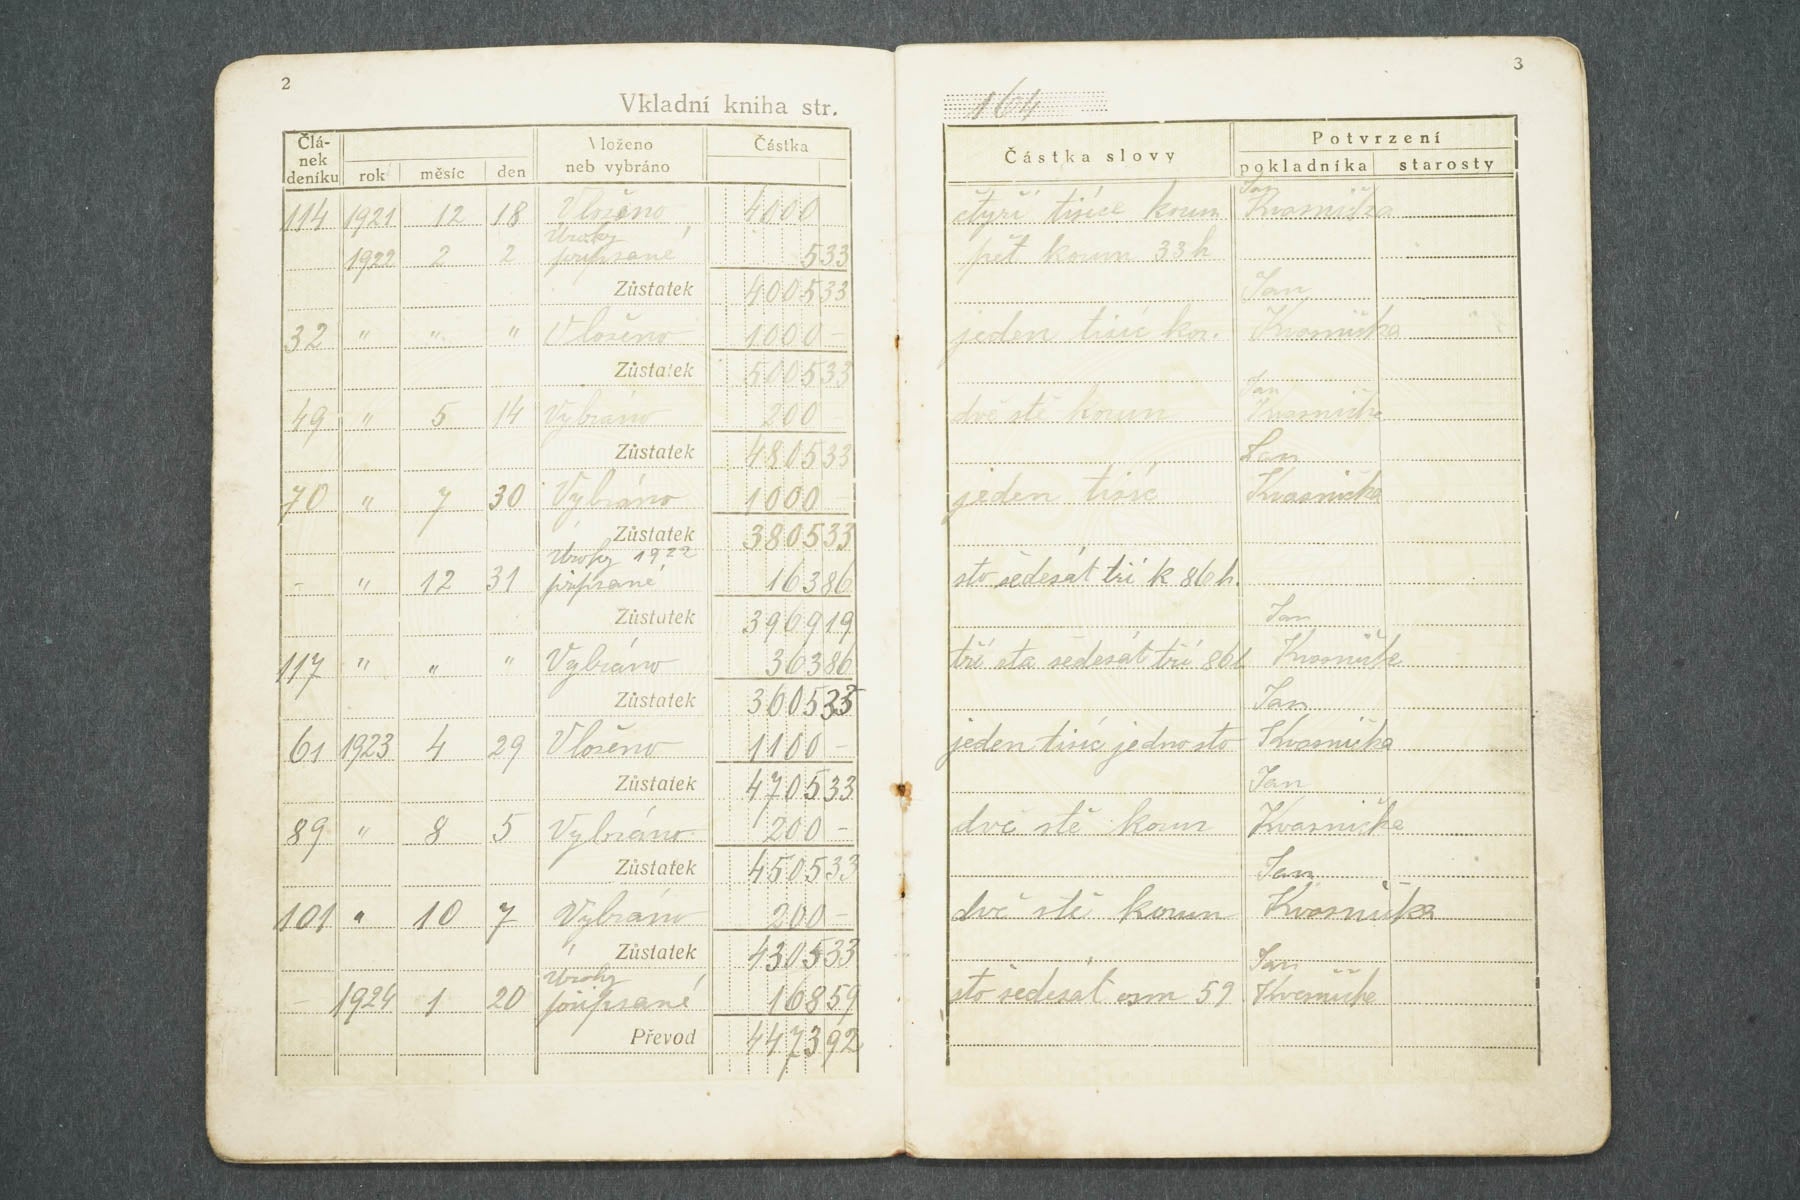 2
Vkladní kniha str.
Člá-
nek
deníku
rok
měsíc
den
Vloženo
neb vybráno
Částka
114 1921 12 18 Vloženo 4000
Úroky
1922 2 2 připsané 533
Zůstatek 400533
32 " " " Vloženo 1000 –
Zůstatek 500533
49 " 5 14 Vybráno 200 –
Zůstatek 480533
70 " 7 30 Vybráno 1000 –
Zůstatek 380533
Úroky 1922
– " 12 31 připsané 16386
Zůstatek 396919
117 " " " Vybráno 36386
Zůstatek 360533
61 1923 4 29 Vloženo 1100 –
Zůstatek 470533
89 " 8 5 Vybráno 200 –
Zůstatek 450533
101 " 10 7 Vybráno 200 –
Zůstatek 430533
Úroky
– 1924 1 20 připsané 16859
Převod 447392
3
164
Částka slovy
Potvrzení
pokladníka
starosty
Jan
čtyři tisíce korun Kvasnička
pět korun 33 h
Jan
jeden tisíc kor. Kvasnička
Jan
dvě stě korun Kvasnička
Jan
jeden tisíc Kvasnička
sto šedesát tři k 86 h.
Jan
tři sta šedesát tři 86 h Kvasnička
Jan
jeden tisíc jedno sto Kvasnička
Jan
dvě stě korun Kvasnička
Jan
dvě stě korun Kvasnička
Jan
sto šedesát osm 59 Kvasnička